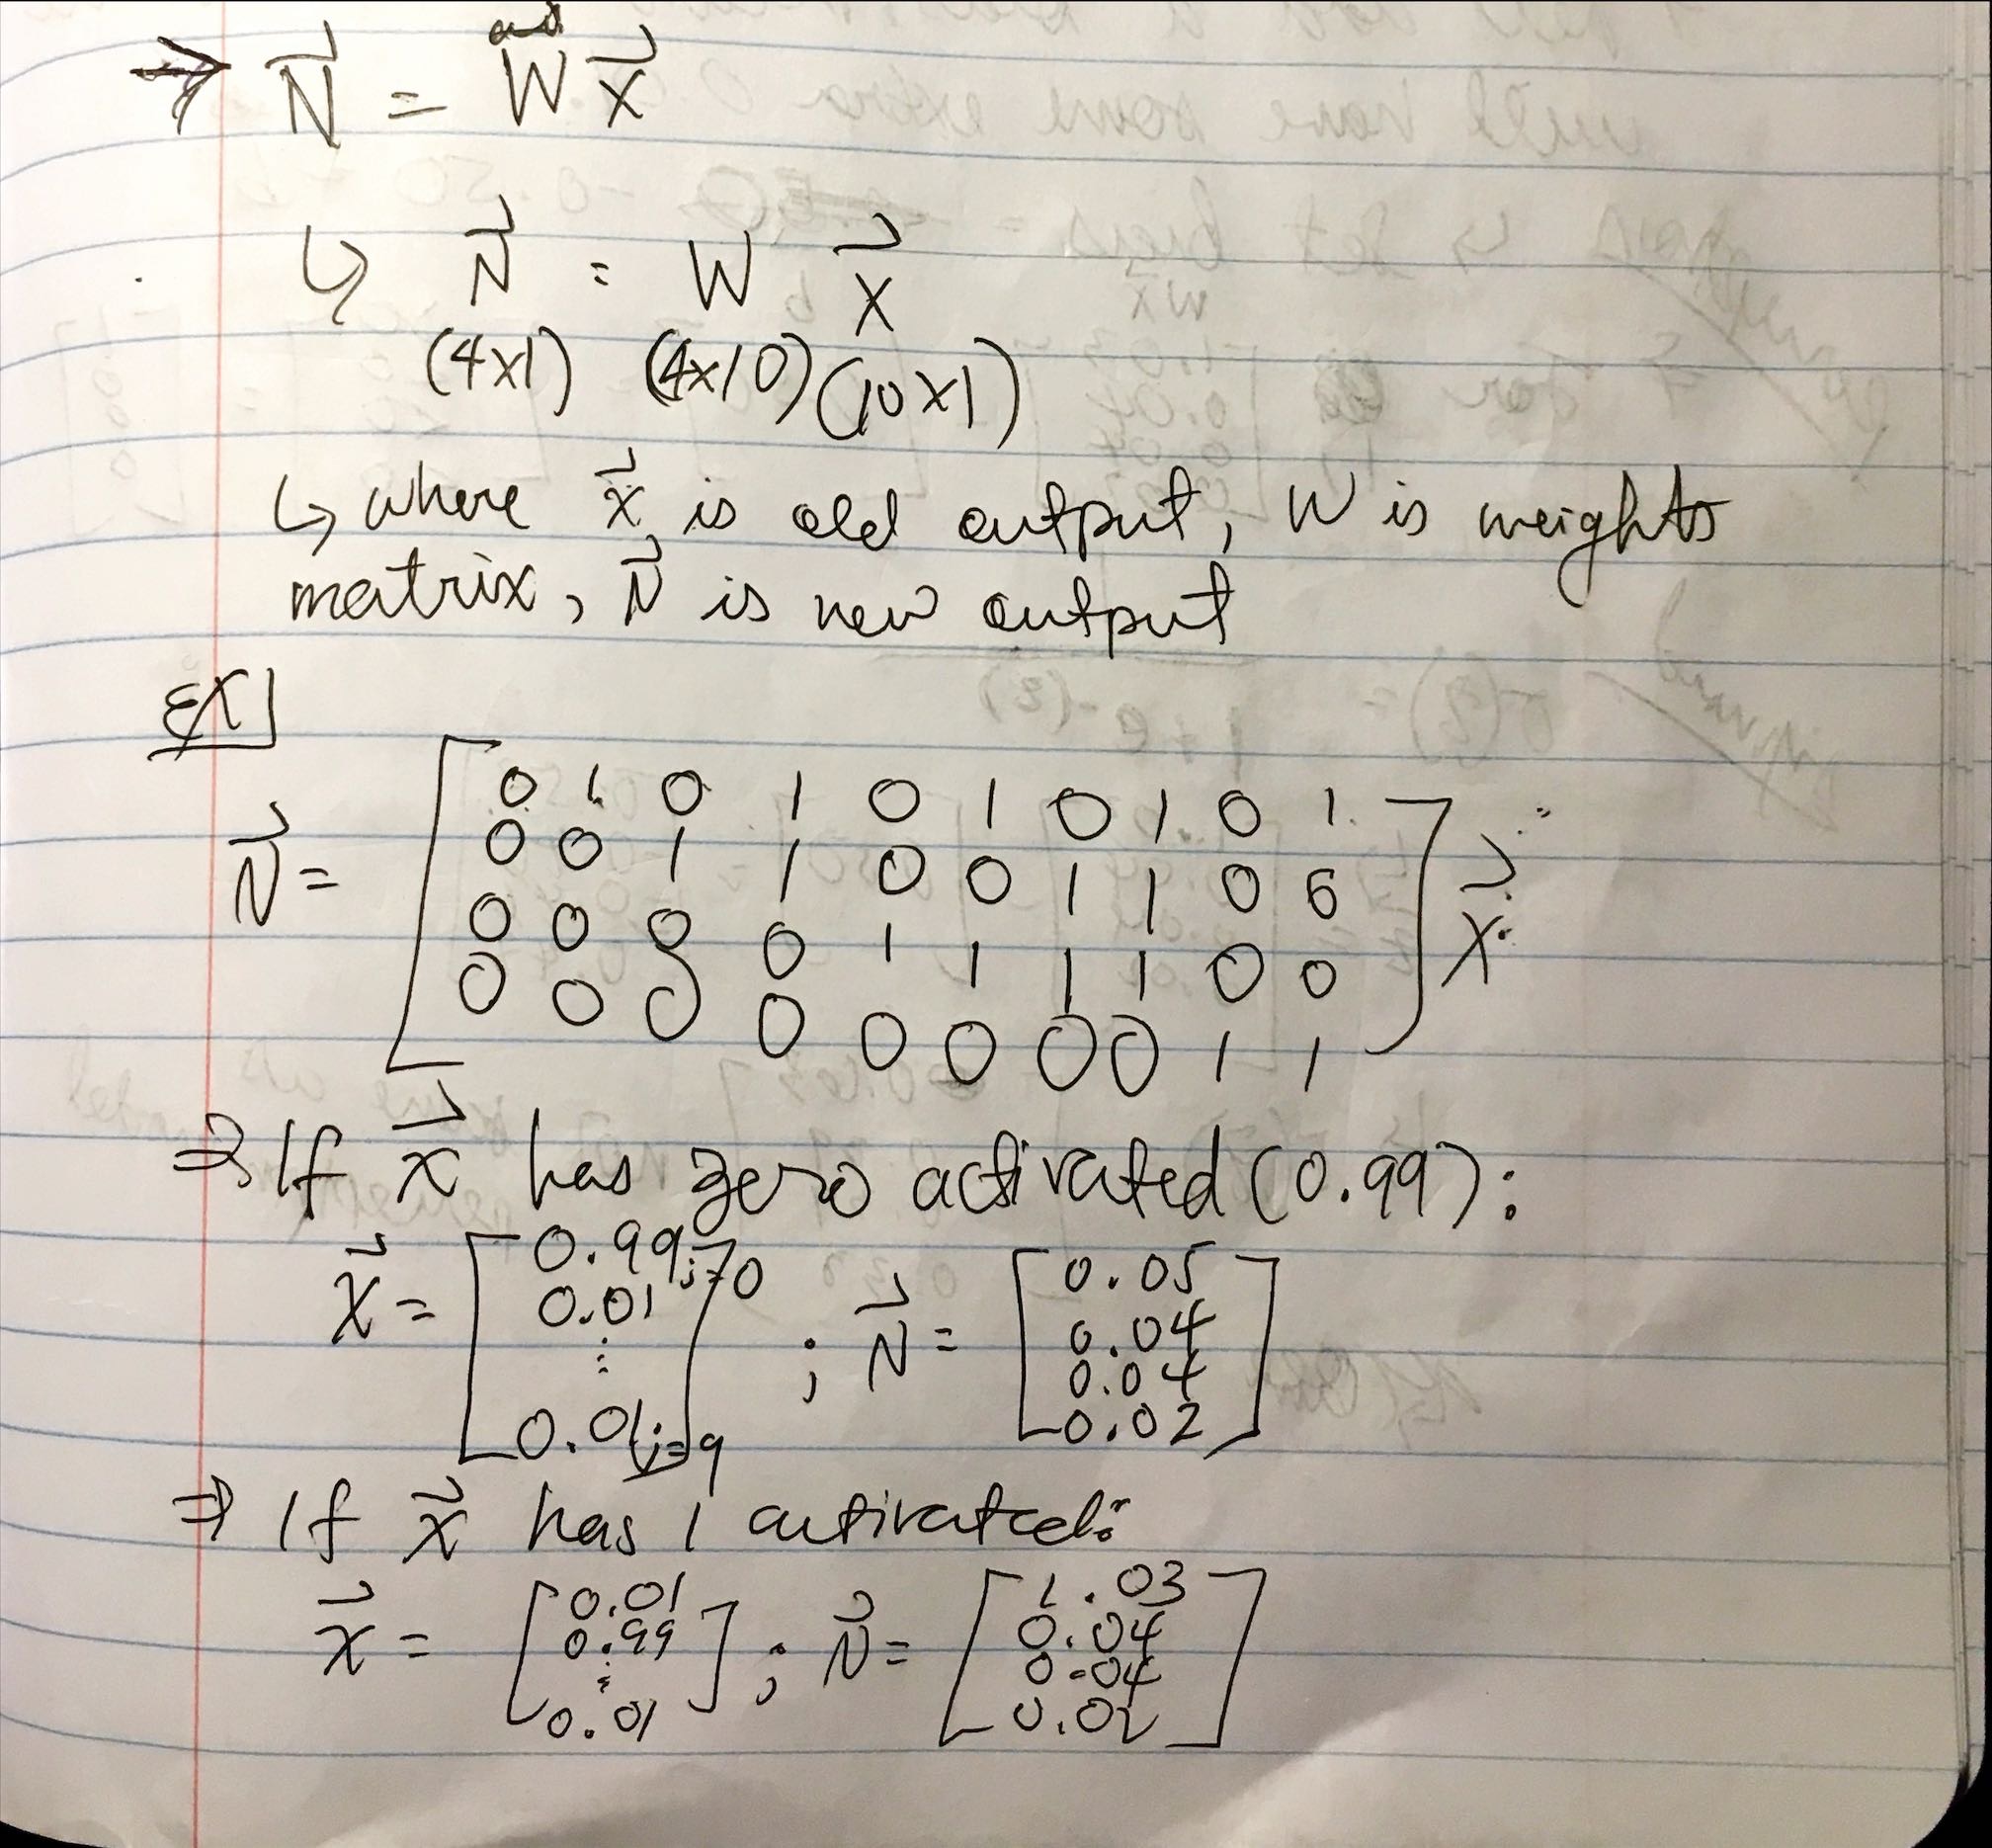 → N⃗ = W x⃗
↳ N⃗ = W x⃗
(4x1) (4x10)(10x1)
↳ where x⃗ is old output, W is weights
matrix, N⃗ is new output
EX
N⃗ = [0 1 0 1 0 1 0 1 0 1
0 0 1 1 0 0 1 1 0 0
0 0 0 0 1 1 1 1 0 0
0 0 0 0 0 0 0 0 1 1] x⃗
⇒ If x⃗ has zero activated (0.99):
x⃗ = [0.99 i=0
0.01
⋮
0.01 i=9] ; N⃗ = [0.05
0.04
0.04
0.02]
⇒ If x⃗ has 1 activated:
x⃗ = [0.01
0.99
⋮
0.01] ; N⃗ = [1.03
0.04
0.04
0.02]